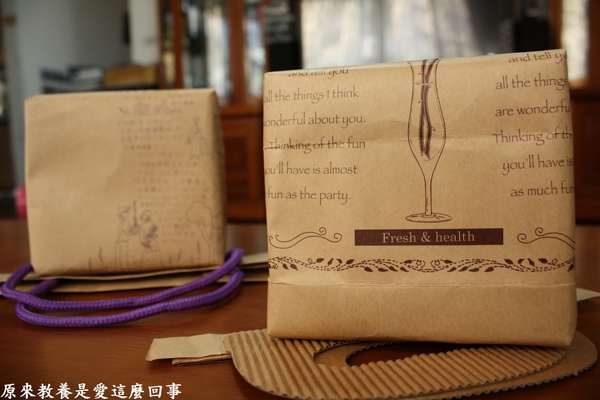 and tell you
all the things I think
wonderful about you.
Thinking of the fun
you'll have is almost
fun as the party.
and tell you
all the things
are wonderful
Thinking of th
you'll have is
as much fun
Fresh & health
原來教養是愛這麼回事